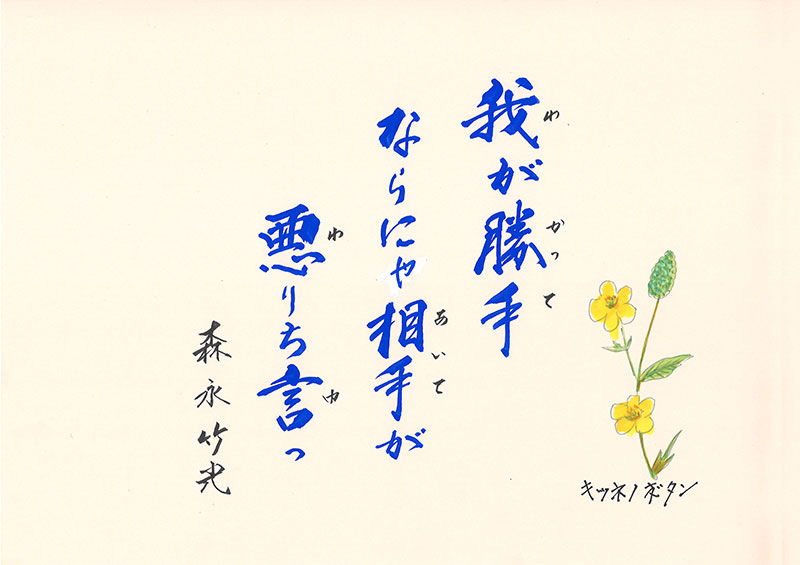 我が勝手
わ かって
ならにゃ相手が
あいて
悪りち言っ
わ ゆ
森永竹光
キツネノボタン